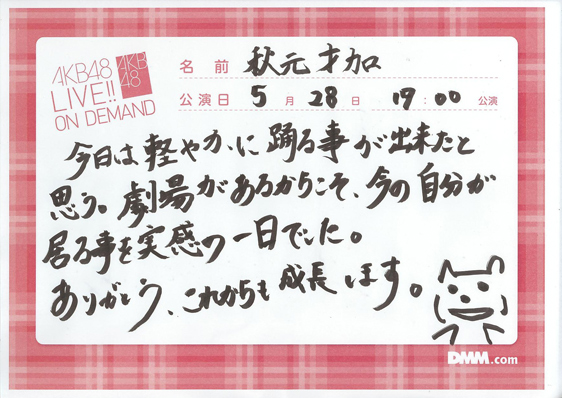 AKB48
LIVE!!
ON DEMAND
AKB
48
名前 秋元才加
公演日 5月28日 19:00公演
今日は軽やかに踊る事が出来たと
思う。劇場があるからこそ、今の自分が
居る事を実感の一日でした。
ありがとう、これからも成長します。
DMM.com